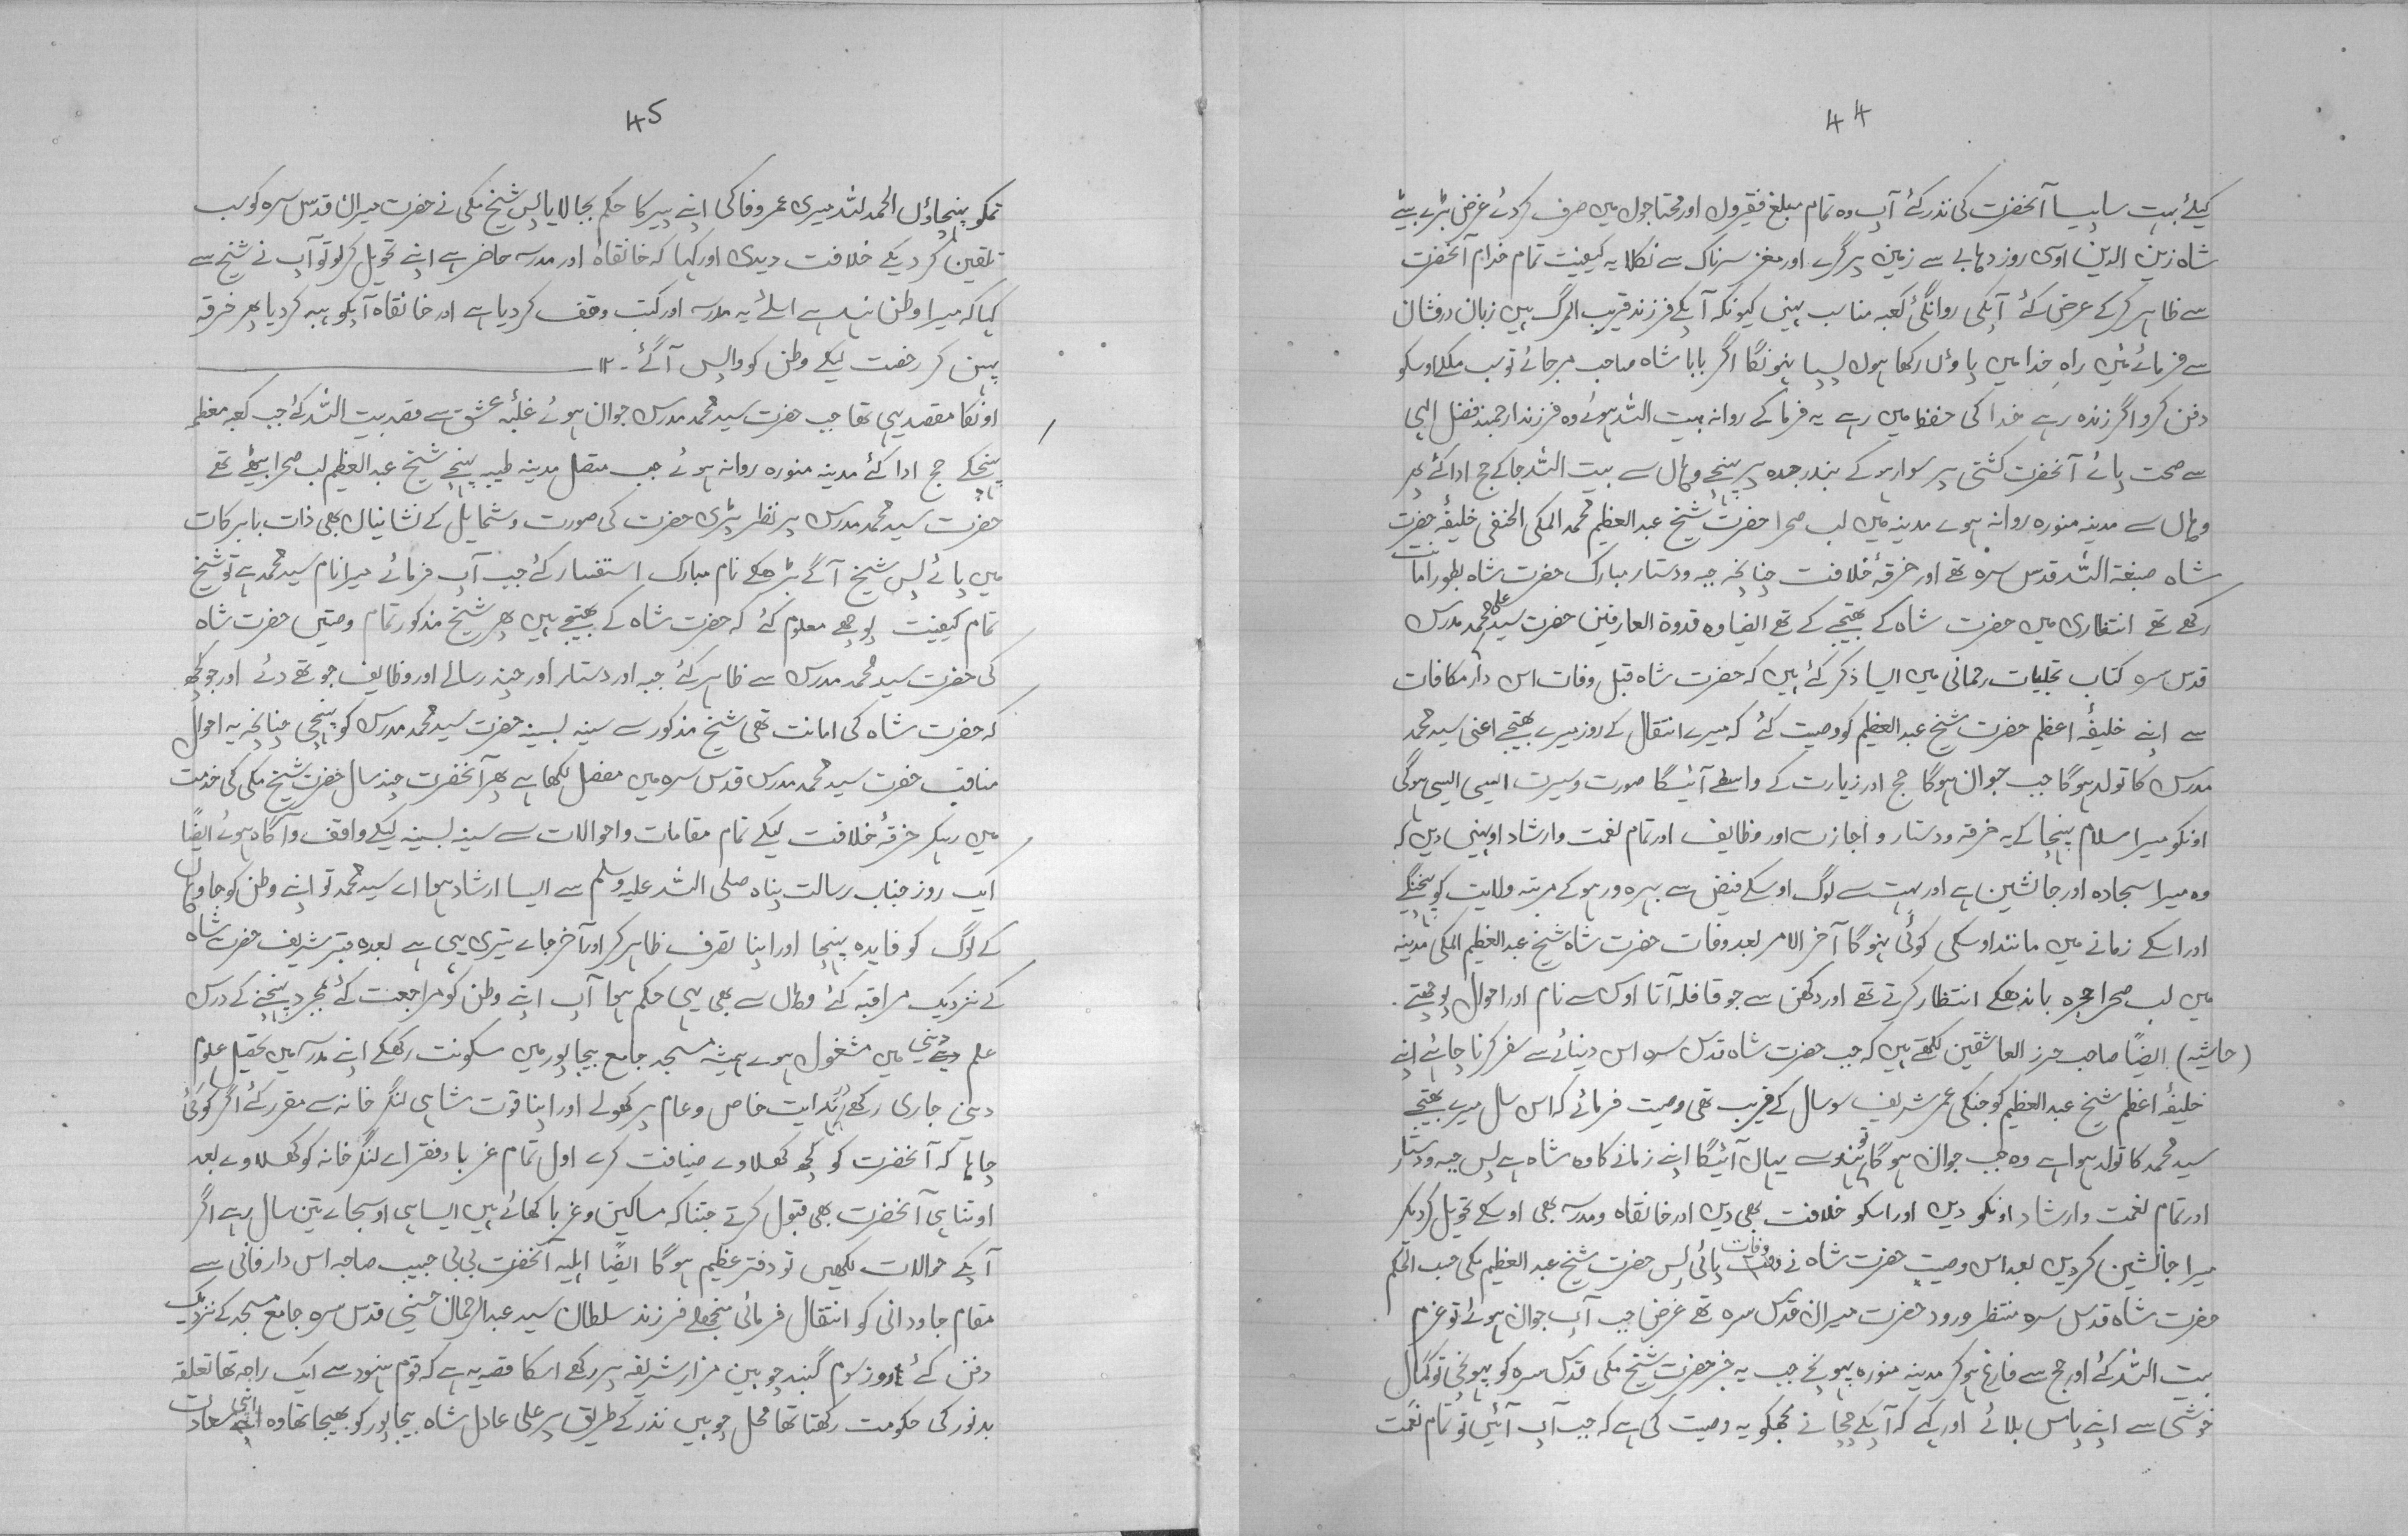 44
کیلئے بہت سا پیسا آنحضرت کی نذر کئے آپ وہ تمام مبلغ فقیروں اور محتاجوں میں صرف کردئے غرض بڑے بیٹے
شاہ زین الدین اوسی روز دہابے سے زمین پر گرے اور مغز سرناک سے نکلا یہ کیفیت تمام خدام آنحضرت
سے ظاہر کرکے عرض کئے آپکی روانگئ کعبہ مناسب نہیں کیونکہ آپکے فرزند قریب المرگ ہیں زبان درفشان
سے فرمائے میں راہِ خدا میں پاوں رکھا ہوں پسپا نہونگا اگر بابا شاہ صاحب مرجائے تو سب ملکے اوسکو
دفن کرو اگر زندہ رہے خدا کی حفظ میں رہے یہ فرما کے روانہ بیت اللہ ہوئے وہ فرزند ارجمند فضل الہی
سے صحت پائے آنحضرت کشتی پر سوار ہو کے بندر جدہ پر پہنچے وہاں سے بیت اللہ جاکے حج ادا کئے پھر
وہاں سے مدینہ منورہ روانہ ہوے مدینہ میں لب صحرا حضرت شیخ عبد العظیم محمد المکی الحنفی خلیفۂ حضرت
شاہ صبغۃ اللہ قدس سرہ تھے اور خرقۂ خلافت چنانچہ جبہ و دستار مبارک حضرت شاہ بطور امانت
رکھے تھے انتظاری میں حضرت شاہ کے بھتیجے کے تھے ایضا وہ قدوۃ العارفین حضرت سید علی محمد مدرس
قدس سرہ کتاب تجلیات رحمانی میں ایسا ذکر کئے ہیں کہ حضرت شاہ قبل وفات اس دار مکافات
سے اپنے خلیفۂ اعظم حضرت شیخ عبد العظیم کو وصیت کئے کہ میرے انتقال کے روز میرے بھتیجے اعنی سید محمد
مدرس کا تولد ہوگا جب جوان ہوگا حج اور زیارت کے واسطے آئیگا صورت و سیرت ایسی ایسی ہوگی
اونکو میرا سلام پہنچا کے یہ خرقہ و دستار و اجازت اور وظایف اور تمام نعمت و ارشاد اونہیں دیں کہ
وہ میرا سجادہ اور جانشین ہے اور بہت سے لوگ اوسکے فیض سے بہرہ ور ہو کے مرتبہ ولایت کو پہنچنگے
اور اسکے زمانے میں مانند اوسکی کوئی نہوگا آخر الامر بعد وفات حضرت شاہ شیخ عبد العظیم المکی مدینہ
میں لب صحرا حجرہ باندھکے انتظار کرتے تھے اور دکھن سے جو قافلہ آتا اوس سے نام اور احوال پوچھتے ۔
(حاشیہ) ایضًا صاحب حرز العاشقین لکھتے ہیں کہ جب حضرت شاہ قدس سرہ اس دنیائے سے سفر کرنا چاہے اپنے
خلیفۂ اعظم شیخ عبد العظیم کو جنکی عمر شریف سو سال کے قریب تھی وصیت فرمائے کہ اس سال میرے بھتیجے
سید محمد کا تولد ہوا ہے وہ جب جوان ہوگا تو ہند سے یہاں آئیگا اپنے زمانے کا وہ شاہ ہے پس جبہ و دستار
اور تمام نعمت و ارشاد اونکو دیں اور اسکو خلافت بھی دیں اور خانقاہ و مدرسہ بھی اوسکے تحویل کردیکر
میرا جانشین کردیں بعد اس وصیت حضرت شاہ نے وفات پائی پس حضرت شیخ عبد العظیم مکی حسب الحکم
حضرت شاہ قدس سرہ منتظر ورود حضرت میران قدس سرہ تھے غرض جب آپ جوان ہوئے تو عزم
بیت اللہ کئے اور حج سے فارغ ہوکر مدینہ منورہ پہونچے جب یہ خبر حضرت شیخ مکی قدس سرہ کو پہونچی تو کمال
خوشی سے اپنے پاس بلائے اور کہے کہ آپکے چچا نے مجھکو یہ وصیت کی ہے کہ جب آپ آئیں تو تمام نعمت
45
تمکو پہنچاوں الحمد للہ میری عمر وفا کی اپنے پیر کا حکم بجا لایا پس شیخ مکی نے حضرت میران قدس سرہ کو سب
تلقین کردیکے خلافت دیدی اور کہا کہ خانقاہ اور مدرسہ حاضر ہے اپنے تحویل کرلو تو آپ نے شیخ سے
کہا کہ میرا وطن نہیں ہے اسلئے یہ مدرسہ اور کتب وقف کردیا ہے اور خانقاہ آپکو ہبہ کردیا پھر خرقہ
پہن کر رخصت لیکے وطن کو واپس آگئے ۔ ۱۲
اونکا مقصد یہی تھا جب حضرت سید محمد مدرس جوان ہوئے غلبۂ عشق سے قصد بیت اللہ کئے جب کعبہ معظمہ
پہنچکے حج ادا کئے مدینہ منورہ روانہ ہوئے جب متصل مدینہ طیبہ پہنچے شیخ عبد العظیم لب صحرا بیٹھے تھے
حضرت سید محمد مدرس پر نظر پڑی حضرت کی صورت و شمایل کے نشانیاں بھی ذات بابرکات
میں پائے پس شیخ آگے بڑھکے نام مبارک استفسار کئے جب آپ فرمائے میرا نام سید محمد ہے تو شیخ
تمام کیفیت پوچھے معلوم کئے کہ حضرت شاہ کے بھتیجے ہیں پھر شیخ مذکور تمام وصیتیں حضرت شاہ
کی حضرت سید محمد مدرس سے ظاہر کئے جبہ اور دستار اور چند رسالے اور وظایف جو تھے دئے اور جو کچھ
کہ حضرت شاہ کی امانت تھی شیخ مذکور سے سینہ بسینہ حضرت سید محمد مدرس کو پہنچی چنانچہ یہ احوال
مناقب حضرت سید محمد مدرس قدس سرہ میں مفصل لکھا ہے پھر آنحضرت چند سال حضرت شیخ مکی کی خدمت
میں رہکر خرقۂ خلافت لیکے تمام مقامات و احوالات سے سینہ بسینہ لیکے واقف و آگاہ ہوئے ایضًا
ایک روز جناب رسالت پناہ صلی اللہ علیہ وسلم سے ایسا ارشاد ہوا اے سید محمد تو اپنے وطن کو جا وہاں
کے لوگ کو فایدہ پہنچا اور اپنا تصرف ظاہر کر اور آخر جاے تیری یہی ہے بعدہ قبر شریف حضرت شاہ
کے نزدیک مراقبہ کئے وہاں سے بھی یہی حکم ہوا آپ اپنے وطن کو مراجعت کئے بمجرد پہنچنے کے درس
علم دینی میں مشغول ہوے ہمیشہ مسجد جامع بیجاپور میں سکونت رکھکے اپنے مدرسہ میں تحصیل علوم
دینی جاری رکھے ہدایت خاص و عام پر کھولے اور اپنا قوت شاہی لنگر خانہ سے مقرر کئے اگر کوئی
چاہا کہ آنحضرت کو کچھ کھلاوے ضیافت کرے اول تمام غربا و فقراے لنگر خانہ کو کھلاوے بعد
اوتنا ہی آنحضرت بھی قبول کرتے جتنا کہ مساکین و غربا کھائے ہیں ایسا ہی اوسجاے تین سال رہے اگر
آپکے حوالات لکھیں تو دفتر عظیم ہوگا ایضًا اہلیہ آنحضرت بی بی حبیب صاحبہ اس دار فانی سے
مقام جاودانی کو انتقال فرمائی منجھلے فرزند سلطان سید عبد الرحمان حسینی قدس سرہ جامع مسجد کے نزدیک
دفن کئے روز سوم گنبد چوبین مزار شریفہ پر رکھے اسکا قصہ یہ ہے کہ قوم ہنود سے ایک راجہ تھا تعلقہ
بدنور کی حکومت رکھتا تھا محل چوبیں نذر کے طریق پر علی عادل شاہ بیجاپور کو بھیجا تھا وہ اپنی سعادت